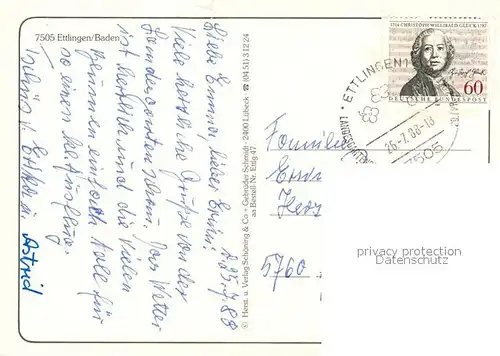 7505 Ettlingen/Baden
Liebe Emma, lieber Erwin! d. 25.7.88
Viele herzliche Grüße von der
Landesgartenschau. Das Wetter
ist herrlich und die vielen
Blumen einfach toll für
so einen kl. Ausflug.
Erika u. Astrid
© Herst. u. Verlag Schöning & Co + Gebrüder Schmidt · 2400 Lübeck · ☎ (04 51) 3 12 24
aa Bestell-Nr. Ettlg 47
1714 CHRISTOPH WILLIBALD GLUCK 1787
60
DEUTSCHE BUNDESPOST
ETTLINGEN 1
26.-7.88-16
7505
Familie
5760
privacy protection
Datenschutz